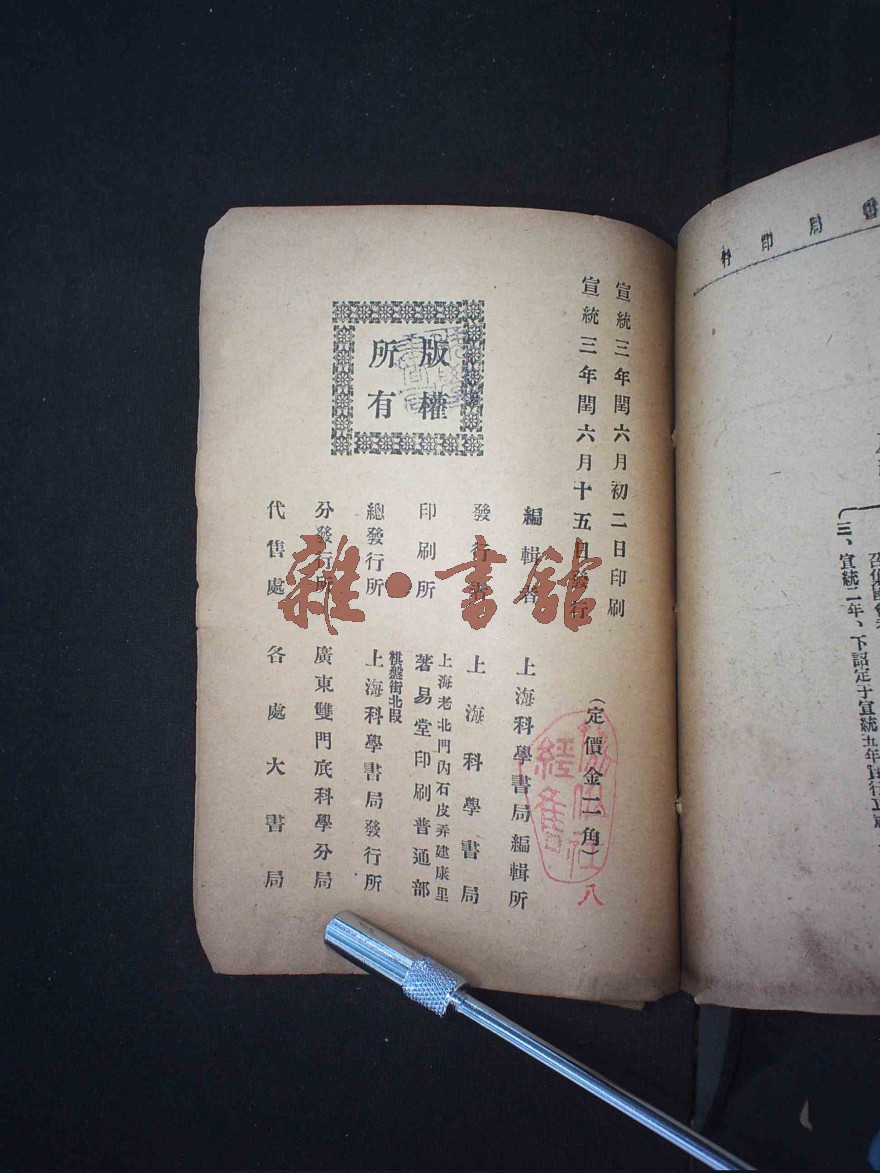 宣統三年閏六月初二日印刷
宣統三年閏六月十五日發行
版權
所有
(定價金二角)
八
經售
編輯者 上海科學書局編輯所
發行者 上海科學書局
印刷所 上海老北門內石皮弄建康里
著易堂印刷普通部
總發行所 棋盤街北段
上海科學書局發行所
分發行所 廣東雙門底科學分局
代售處 各處大書局
雜·書館
書局印行
三、宣統二年、下詔定于宣統五年實行立憲